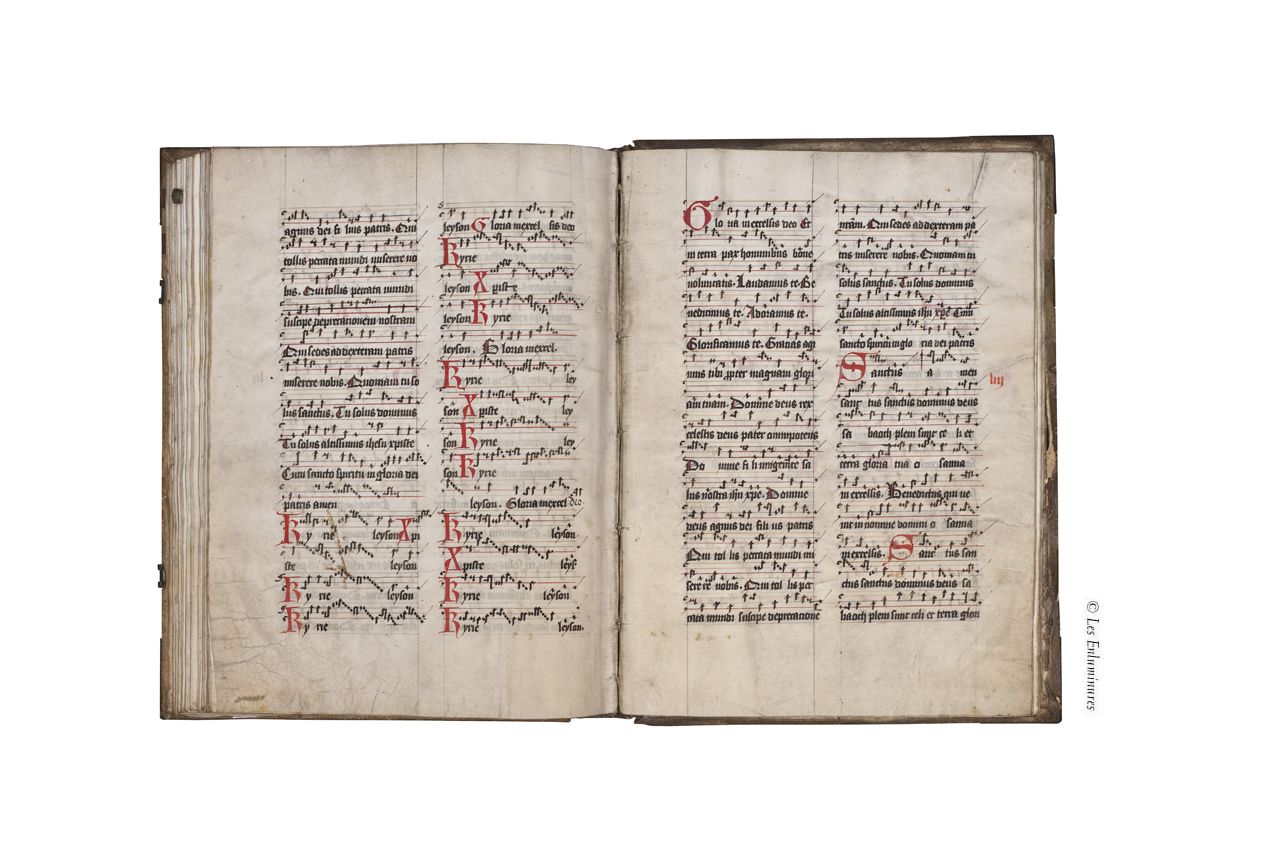 agnus dei fi lius patris. Qui
tollis peccata mundi miserere no
bis. Qui tollis peccata mundi
suscipe deprecationem nostram
Qui sedes ad dexteram patris
miserere nobis. Quoniam tu so
lus sanctus. Tu solus dominus
Tu solus altissimus ihesu xpiste
Cum sancto spiritu in gloria dei
patris amen
Ky rie leyson Xpi
ste leyson
Ky rie leyson.
Ky rie
leyson Gloria in excel sis deo
Kyrie
leyson Xpiste
leyson Kyrie
leyson. Gloria in excel.
Kyrie ley
son Xpiste ley
son Kyrie ley
son Kyrie
leyson. Gloria in excel deo
Kyrie leyson.
Xpiste leys
Kyrie leyson.
Kyrie leyson.
Glo ria in excelsis deo Et
in terra pax hominibus bone
voluntatis. Laudamus te. Be
nedicimus te. Adoramus te.
Glorificamus te. Gracias agi
mus tibi ppter magnam glori
am tuam. Domine deus rex
celestis deus pater omnipotens
Do mine fi li unigenite
lus nostra ihu xpe. Domine
deus agnus dei fili us patris
Qui tol lis peccata mundi mi
serere nobis. Qui tol lis pec
cata mundi suscipe deprecatione
nram. Qui sedes ad dexteram pa
tris miserere nobis. Quoniam tu
solus sanctus. Tu solus dominus
Tu solus altissimus ihu xpe Cum
sancto spiritu in glo ria dei patris
Sanctus a men
sanc tus sanctus dominus deus
sa baoth pleni sunt ce li et
terra gloria tua o sanna
in excelsis. Benedictus qui ve
nit in nomine domini o sanna
in excelsis. Sanc tus san
ctus sanctus dominus deus sa
baoth pleni sunt celi et terra glori
iiij
© Les Enluminures